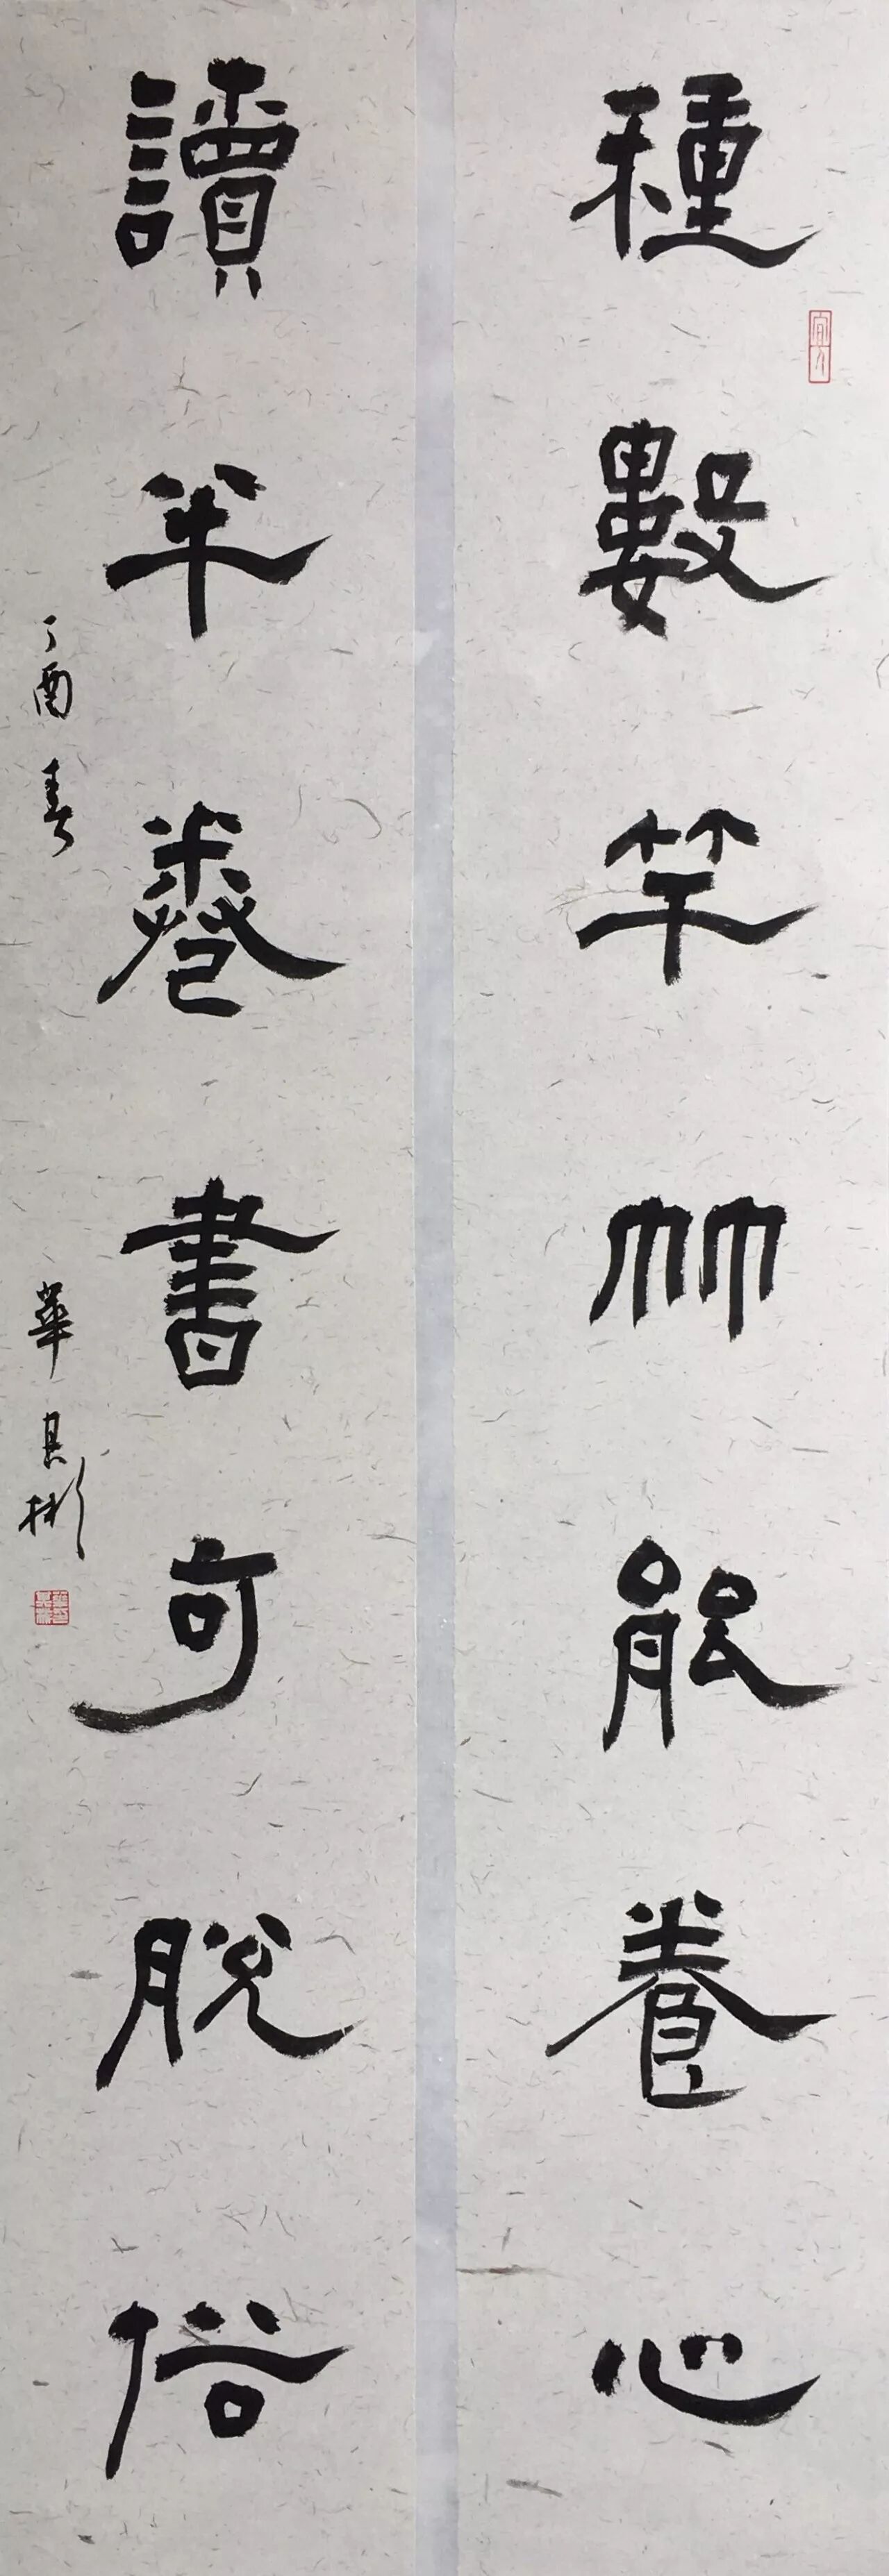 種數竿竹能養心
讀半卷書可脫俗
丁酉春
華良彬